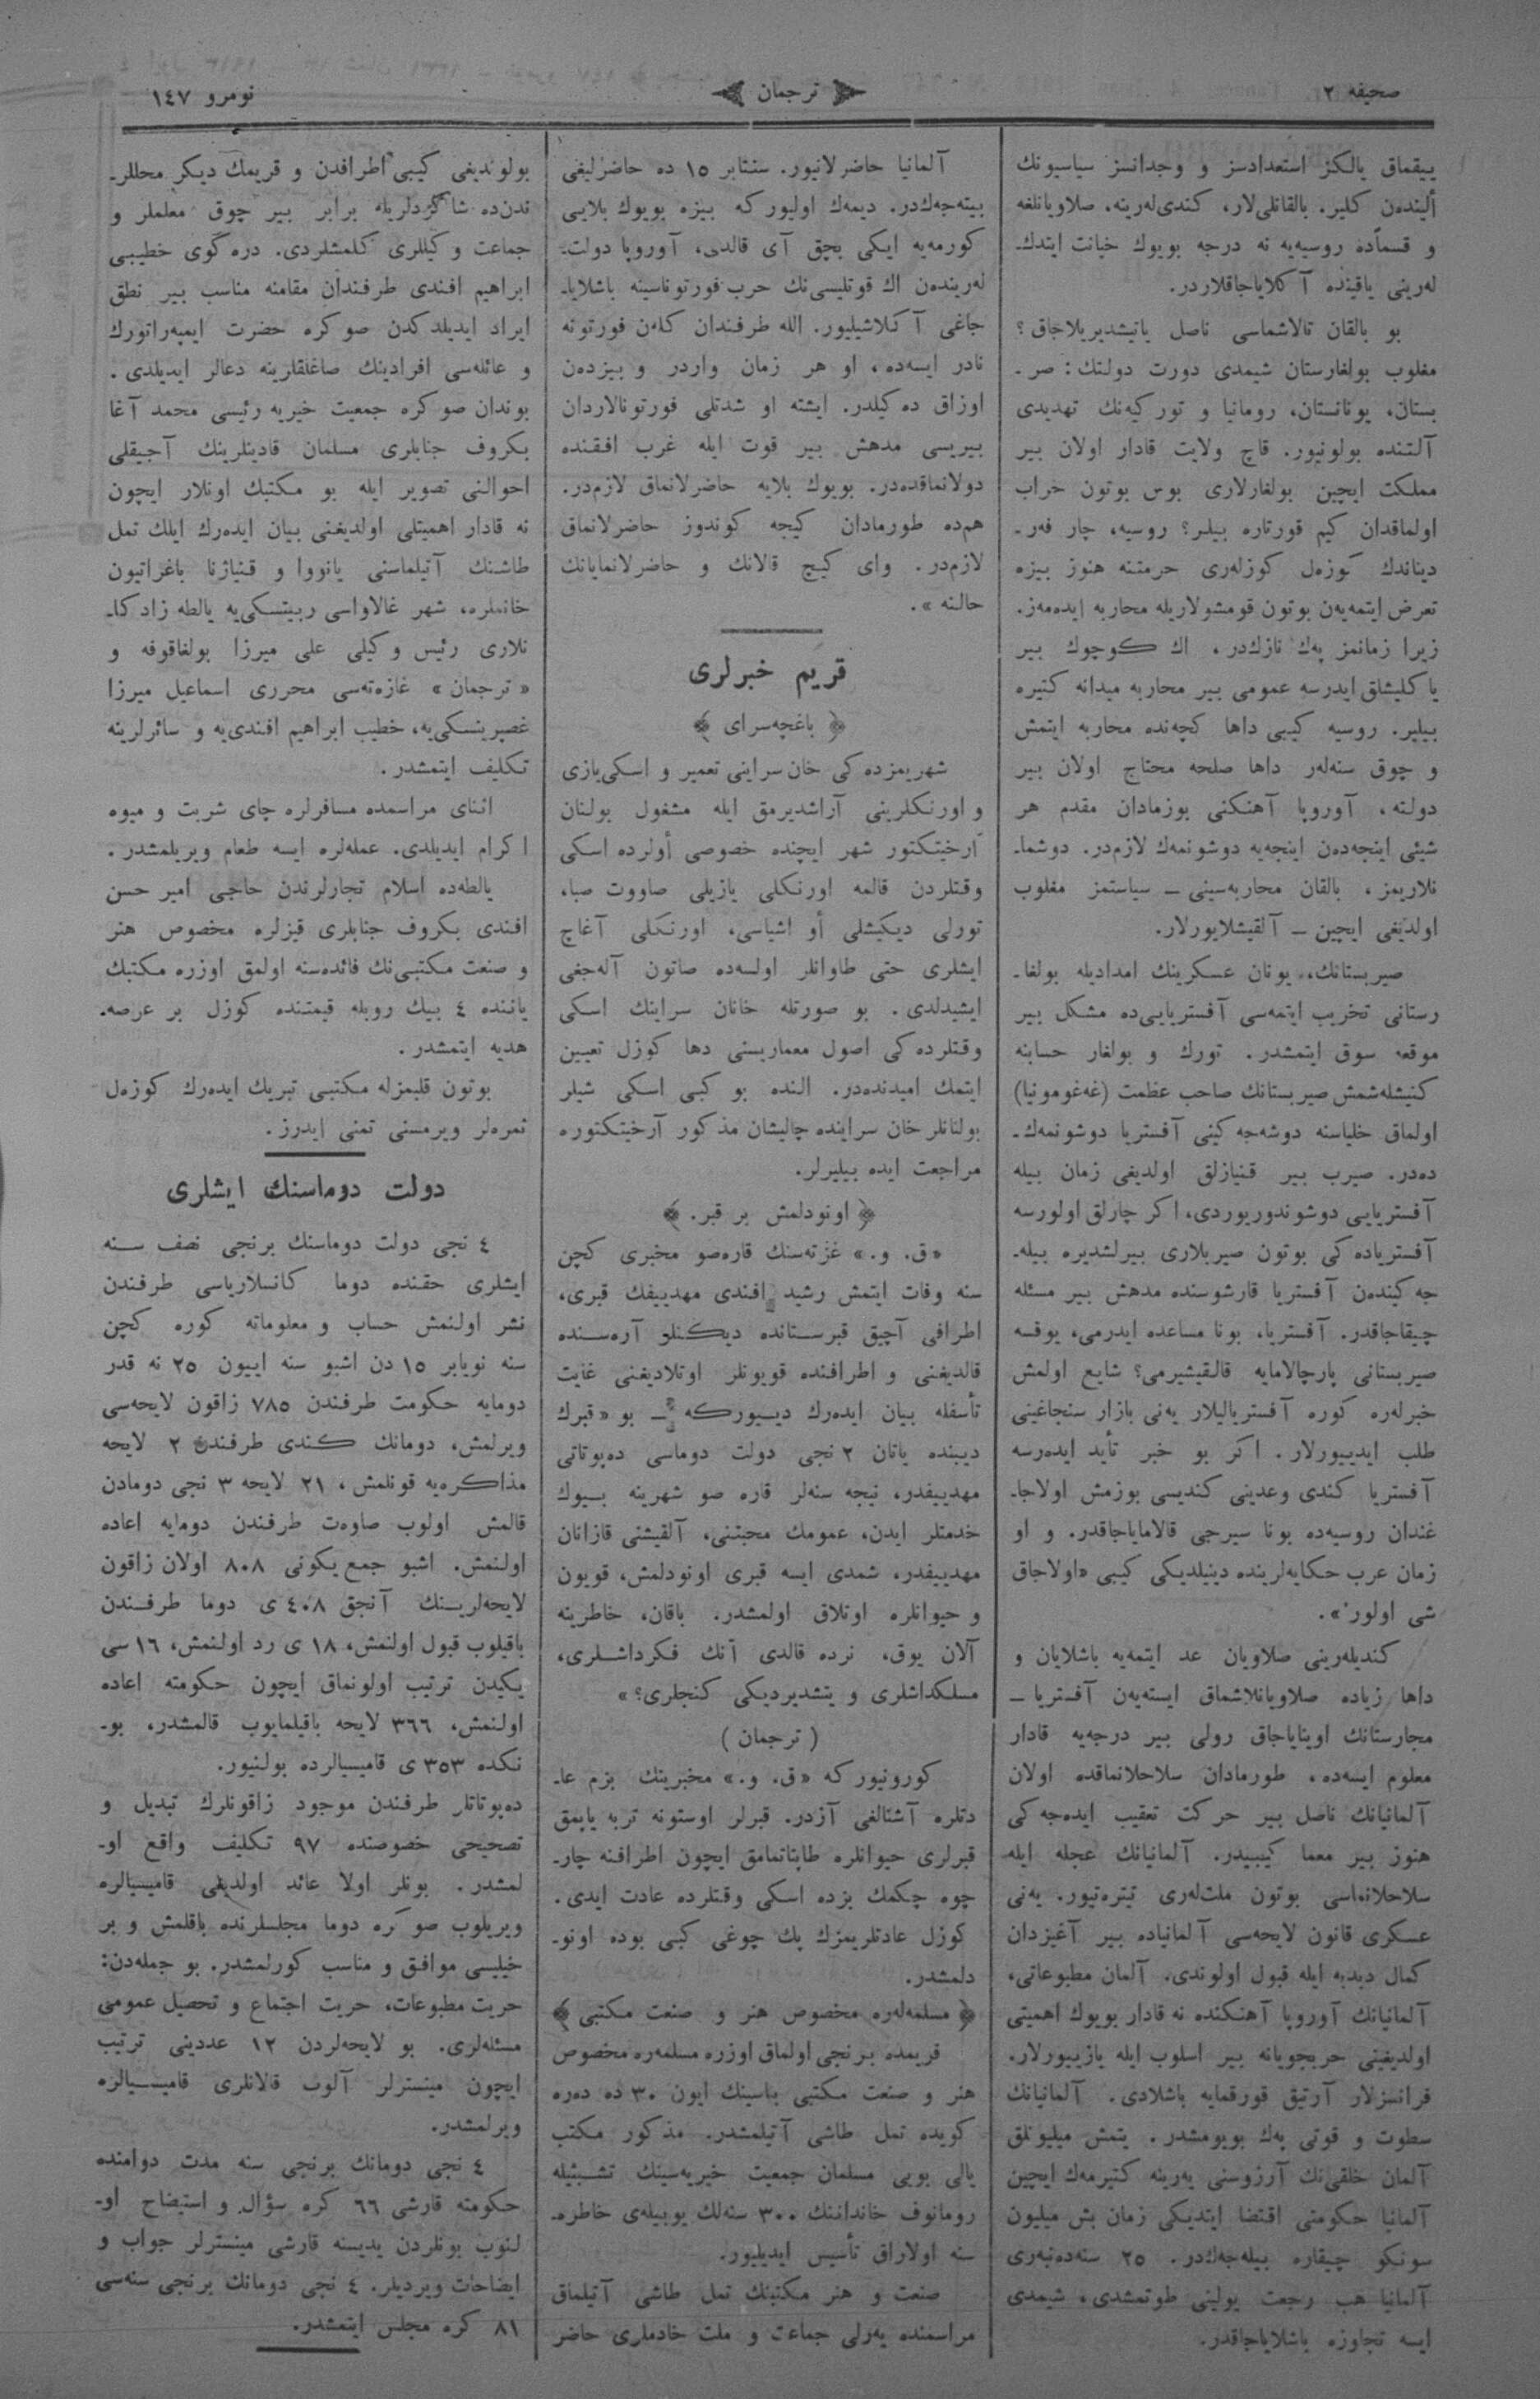 صحیفه ٢
ترجمان
نومرو ١٤٧
ییقماق یالکز استعدادسز و وجدانسز سیاسیونك
ألیندەن کلیر. بالقانلی‌لار، کندی‌لەرینه، صلاویانلغه
و قسماًده روسیەیه نه درجه بویوك خیانت ایتدك‌ـ
لەرینی یاقینده آکلایاجاقلاردر.
بو بالقان تالاشماسی ناصل یاتیشدیریلاجاق؟
مغلوب بولغارستان شیمدی دورت دولتك: صر ـ
بستان، یونانستان، رومانیا و تورکیەنك تهدیدی
آلتنده بولونیور. قاچ ولایت قادار اولان بیر
مملکت ایچین بولغارلاری بوس بوتون خراب
اولماقدان کیم قورتاره بیلر؟ روسیه، چار فەر ـ
دیناندك کوزەل کوزلەری حرمتنه هنوز بیزه
تعرض ایتمەیەن بوتون قومشولاریله محاربه ایدەمەز.
زیرا زمانمز پەك نازك‌در، اك کوچوك بیر
یاکلیشلق ایدرسه عمومی بیر محاربه میدانه کتیره
بیلیر. روسیه کیبی داها کچەنده محاربه ایتمش
و چوق سنەلەر داها صلحه محتاج اولان بیر
دولته، آوروپا آهنکنی بوزمادان مقدم هر
شیئی اینجەدەن اینجەیه دوشونمەك لازم‌در. دوشماـ
نلاریمز، بالقان محاربەسینی ــ سیاستمز مغلوب
اولدیغی ایچین ــ آلقیشلایورلار.
صیربستانك، یونان عسکرینك امدادیله بولغاـ
رستانی تخریب ایتمەسی آفستریایی‌ده مشکل بیر
موقعه سوق ایتمشدر. تورك و بولغار حسابنه
کنیشلەشمش صیربستانك صاحب عظمت (غەغومونیا)
اولماق خلیاسنه دوشەجەکینی آفستریا دوشونمەك‌ـ
دەدر. صیرب بیر قنیازلق اولدیغی زمان بیله
آفستریایی دوشوندوریوردی، اکر چارلق اولورسه
آفستریاده‌کی بوتون صیربلاری بیرلشدیره بیلەـ
جەکیندەن آفستریا قارشوسنده مدهش بیر مسئله
چیقاجاقدر. آفستریا، بونا مساعده ایدرمی، یوقسه
صیربستانی پارچالامایه قالقیشیرمی؟ شایع اولمش
خبرلەره کوره آفستریالیلار یەنی بازار سنجاغینی
طلب ایدییورلار. اکر بو خبر تأید ایدەرسه
آفستریا کندی وعدینی کندیسی بوزمش اولاجاـ
غندان روسیەده بونا سیرجی قالامایاجاقدر. و او
زمان عرب حکایەلرینده دینیلدیکی کیبی «اولاجاق
شی اولور».
کندیلەرینی صلاویان عد ایتمەیه باشلایان و
داها زیاده صلاویانلاشماق ایستەیەن آفستریا ــ
مجارستانك اوینایاجاق رولی بیر درجەیه قادار
معلوم ایسەده، طورمادان سلاحلانماقده اولان
آلمانیانك ناصل بیر حرکت تعقیب ایدەجەکی
هنوز بیر معما کیبیدر. آلمانیانك عجله ایله
سلاحلانماسی بوتون ملت‌لەری تیترەتیور. یەنی
عسکری قانون لایحەسی آلمانیاده بیر آغیزدان
کمال دبدبه ایله قبول اولوندی. آلمان مطبوعاتی،
آلمانیانك آوروپا آهنکنده نه قادار بویوك اهمیتی
اولدیغینی حربجویانه بیر اسلوب ایله یازییورلار.
فرانسزلار آرتیق قورقمایه باشلادی. آلمانیانك
سطوت و قوتی پەك بویومشدر. یتمش میلیونلق
آلمان خلقی‌نك آرزوسنی یەرینه کتیرمەك ایچین
آلمانیا حکومتی اقتضا ایتدیکی زمان بش میلیون
سونکو چیقاره بیلەجەك‌در. ٢٥ سنەدەنبەری
آلمانیا هب رجعت یولینی طوتمشدی، شیمدی
ایسه تجاوزه باشلایاجاقدر.
آلمانیا حاضرلانیور. سنتابر ١٥ ده حاضرلیغی
بیتەجەك‌در. دیمەك اولیورکه بیزه بویوك بلایی
کورمەیه ایکی بچق آی قالدی، آوروپا دولت‌ـ
لەریندەن اك قوتلیسی‌نك حرب فورتوناسینه باشلایاـ
جاغی آکلاشیلیور. الله طرفندان کلەن فورتونه
نادر ایسەده، او هر زمان واردر و بیزدەن
اوزاق دەکیلدر. ایشته او شدتلی فورتونالاردان
بیریسی مدهش بیر قوت ایله غرب افقنده
دولانماقدەدر. بویوك بلایه حاضرلانماق لازم‌در.
هم‌ده طورمادان کیجه کوندوز حاضرلانماق
لازم‌در. وای کیچ قالانك و حاضرلانمایانك
حالنه».
قریم خبرلری
﴿ باغچەسرای ﴾
شهریمزده‌کی خان سراینی تعمیر و اسکی‌یازی
و اورنکلرینی آراشدیرمق ایله مشغول بولنان
آرخیتکتور شهر ایچنده خصوصی أولرده اسکی
وقتلردن قالمه اورنکلی یازیلی صاووت صبا،
تورلی دیکیشلی أو اشیاسی، اورنکلی آغاچ
ایشلری حتی طاوانلر اولسەده صاتون آلەجغی
ایشیدلدی. بو صورتله خانان سراینك اسکی
وقتلرده‌کی اصول معماریسنی دها کوزل تعیین
ایتمك امیدندەدر. النده بو کبی اسکی شیلر
بولنانلر خان سراینده چالیشان مذکور آرخیتکتوره
مراجعت ایده بیلیرلر.
﴿ اونودلمش بر قبر. ﴾
«ق. و.» غزتەسنك قارەصو مخبری کچن
سنه وفات ایتمش رشید افندی مهدییفك قبری،
اطرافی آچیق قبرستانده دیکنلق آرەسنده
قالدیغنی و اطرافنده قویونلر اوتلادیغنی غایت
تأسفله بیان ایدەرك دیـیورکه ــ بو «قبرك
دیبنده یاتان ٢ نجی دولت دوماسی دەپوتاتی
مهدییفدر، نیجه سنەلر قاره صو شهرینه بـیوك
خدمتلر ایدن، عمومك محبتنی، آلقیشنی قازانان
مهدییفدر، شمدی ایسه قبری اونودلمش، قویون
و حیوانلره اوتلاق اولمشدر. باقان، خاطرینه
آلان یوق، نرده قالدی آنك فکرداشـلری،
مسلکداشلری و یتشدیردیکی کنجلری؟»
( ترجمان )
کورونیورکه «ق. و.» مخبرینك بزم عاـ
دتلره آشنالغی آزدر. قبرلر اوستونه تربه یاپمق
قبرلری حیوانلره طاپتاتمامق ایچون اطرافنه چارـ
چوه چکمك بزده اسکی وقتلرده عادت ایدی.
کوزل عادتلریمزك پك چوغی کبی بوده اونوـ
دلمشدر.
﴿ مسلمەلەره مخصوص هنر و صنعت مکتبی ﴾
قریمده برنجی اولماق اوزره مسلمەره مخصوص
هنر و صنعت مکتبی بناسینك ایون ٣٠ ده دەره
کویده تمل طاشی آتیلمشدر. مذکور مکتب
یالی بویی مسلمان جمعیت خیریەسینك تشـبثیله
رومانوف خانداننك ٣٠٠ سنەلك یوبیلەی خاطرەـ
سنه اولاراق تأسیس ایدیلیور.
صنعت و هنر مکتبنك تمل طاشی آتیلماق
مراسمنده یەرلی جماعت و ملت خادملری حاضر
بولوندیغی کیبی اطرافدن و قریمك دیکر محللرـ
ندن‌ده شاکردلریله برابر بیر چوق معلملر و
جماعت وکیللری کلمشلردی. دره‌کوی خطیبی
ابراهیم افندی طرفندان مقامنه مناسب بیر نطق
ایراد ایدیلدکدن صوکره حضرت ایمپەراتورك
و عائلەسی افرادینك صاغلقلرینه دعالر ایدیلدی.
بوندان صوکره جمعیت خیریه رئیسی محمد آغا
بکروف جنابلری مسلمان قادینلرینك آجیقلی
احوالنی تصویر ایله بو مکتبك اونلار ایچون
نه قادار اهمیتلی اولدیغنی بیان ایدەرك ایلك تمل
طاشنك آتیلماسنی یانووا و قنیاژنا باغراتیون
خانملره، شهر غالاواسی ربیتسکی‌یه یالطه زادکاـ
نلاری رئیس وکیلی علی میرزا بولغاقوفه و
«ترجمان» غازەتەسی محرری اسماعیل میرزا
غصپرینسکی‌یه، خطیب ابراهیم افندی‌یه و سائرلرینه
تکلیف ایتمشدر.
اثنای مراسمده مسافرلره چای شربت و میوه
اکرام ایدیلدی. عملەلره ایسه طعام ویریلمشدر.
یالطەده اسلام تجارلرندن حاجی امیر حسن
افندی بکروف جنابلری قیزلره مخصوص هنر
و صنعت مکتبی‌نك فائدەسنه اولمق اوزره مکتبك
یاننده ٤ بیك روبله قیمتنده کوزل بر عرصه‌ـ
هدیه ایتمشدر.
بوتون قلبمزله مکتبی تبریك ایدەرك کوزەل
ثمرەلر ویرمسنی تمنی ایدرز.
دولت دوماسنك ایشلری
٤ نجی دولت دوماسنك برنجی نصف سـنه
ایشلری حقنده دوما کانسلاریاسی طرفندن
نشر اولنمش حساب و معلوماته کوره کچن
سنه نویابر ١٥ دن اشبو سنه اییون ٢٥ نه قدر
دومایه حکومت طرفندن ٧٨٥ زاقون لایحەسی
ویرلمش، دومانك کندی طرفندن ٢ لایحه
مذاکرەیه قونلمش، ٢١ لایحه ٣ نجی دومادن
قالمش اولوب صاوەت طرفندن دومایه اعاده
اولنمش. اشبو جمع یکونی ٨٠٨ اولان زاقون
لایحەلریـنك آنجق ٤٠٨ ی دوما طرفـندن
باقیلوب قبول اولنمش، ١٨ ی رد اولنمش، ١٦ سی
یکیدن ترتیب اولونماق ایچون حکومته اعاده
اولنمش، ٣٦٦ لایحه باقیلمایوب قالمشدر، بوـ
نکده ٣٥٣ ی قامیسیالرده بولنیور.
دەپوتاتلر طرفندن موجود زاقونلرك تبدیل و
تصحیحی خصوصنده ٩٧ تکلیف واقع اوـ
لمشدر. بونلر اولا عائد اولدیغی قامیسیالره
ویریلوب صوکره دوما مجلسلرنده باقلمش و بر
خیلیسی موافق و مناسب کورلمشدر. بو جملەدن:
حریت مطبوعات، حریت اجتماع و تحصیل عمومی
مسئلەلری. بو لایحەلردن ١٢ عددینی ترتیب
ایچون مینسترلر آلوب قالانلری قامیسـیالره
ویرلمشدر.
٤ نجی دومانك برنجی سنه مدت دوامنده
حکومته قارشی ٦٦ کره سؤال و استیضاح اوـ
لنوب بونلردن یدیسنه قارشی مینسترلر جواب و
ایضاحات ویردیلر. ٤ نجی دومانك برنجی سنەسی
٨١ کره مجلس ایتمشدر.